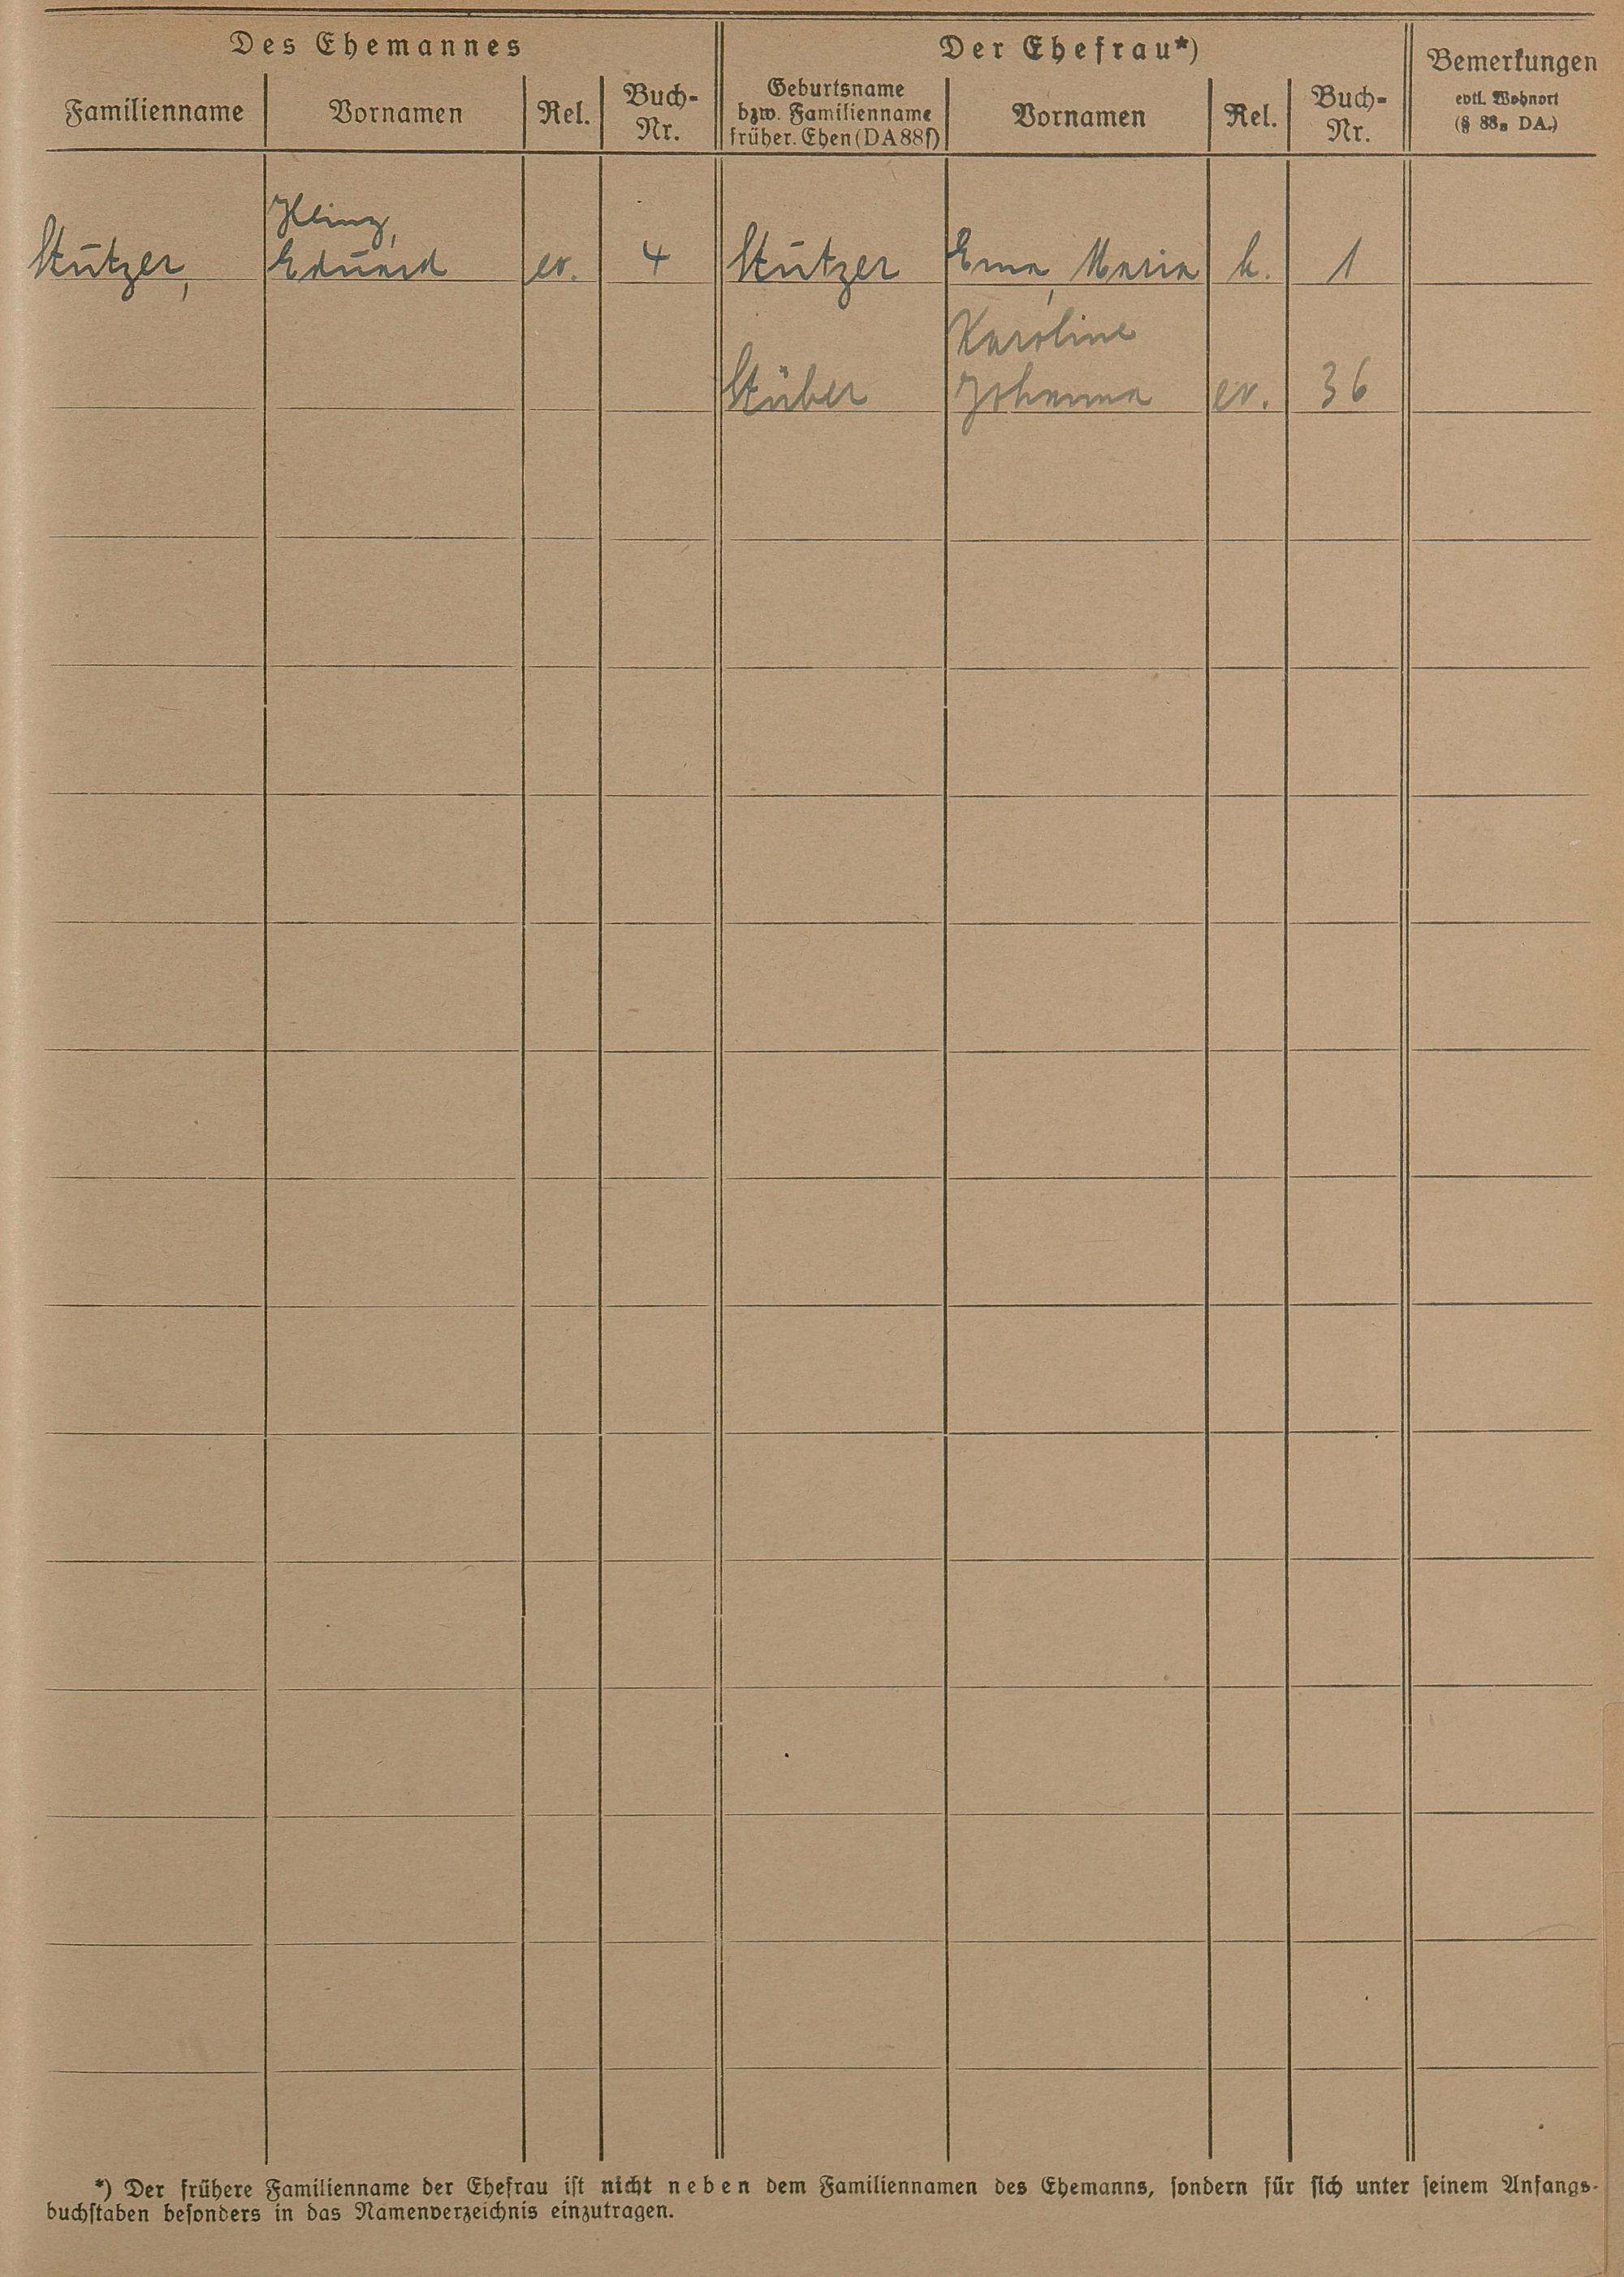 Des Ehemannes
Familienname Vornamen Rel. Buch-Nr.
Der Ehefrau*)
Geburtsname bzw. Familienname früher. Ehen (DA 88f) Vornamen Rel. Buch-Nr.
Bemerkungen
evtl. Wohnort
(§ 88 DA.)
Heinz,
Stutzer, Eduard ev. 4 Stutzer Erna, Maria k. 1
Karoline
Stüber Johanna ev. 36
*) Der frühere Familienname der Ehefrau ist nicht neben dem Familiennamen des Ehemanns, sondern für sich unter seinem Anfangs-
buchstaben besonders in das Namenverzeichnis einzutragen.